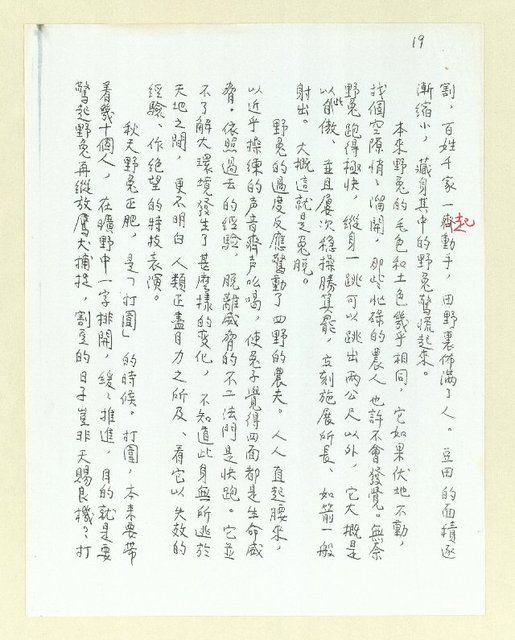 19
割，百姓千家一齊起動手，田野裏佈滿了人。豆田的面積逐
漸缩小，藏身其中的野兔驚慌起來。
本來野兔的毛色和土色幾乎相同，它如果伏地不動，
找個空隙悄悄溜開，那些忙碌的農人也許不會發覺。無奈
野兔跑得極快，縱身一跳可以跳出兩公尺以外，它大概是
以此自傲，並且屢次穩操勝算罷，立刻施展所長，如箭一般
射出。大概這就是兔脫。
野兔的過度反應驚動了四野的農夫。人人直起腰來，
以近乎操練的声音齊声吆喝，使兔子覺得四面都是生命威
脅。依照過去的經驗，脫離威脅的不二法門是快跑。它並
不了解大環境發生了甚麼樣的变化，不知道此身無所逃於
天地之間，更不明白人類正盡目力之所及、看它以失效的
經驗、作絕望的特技表演。
秋天野兔正肥，是「打圍」的時候。打圍，本來要帶
着幾十個人，在曠野中一字排開，緩緩推進，目的就是要
驚起野兔再縱放鷹犬捕捉，割豆的日子豈非天賜良機？打